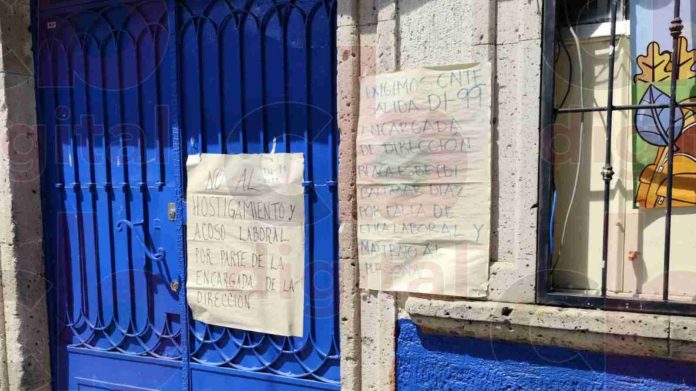 NO AL
HOSTIGAMIENTO Y
ACOSO LABORAL
POR PARTE DE LA
ENCARGADA DE LA
DIRECCIÓN
EXIGIMOS CNTE
SALIDA DI-99
ENCARGADA
DE DIRECCION
DIAZ
POR FALTA DE
ETICA LABORAL Y
MALTRATO AL
digital